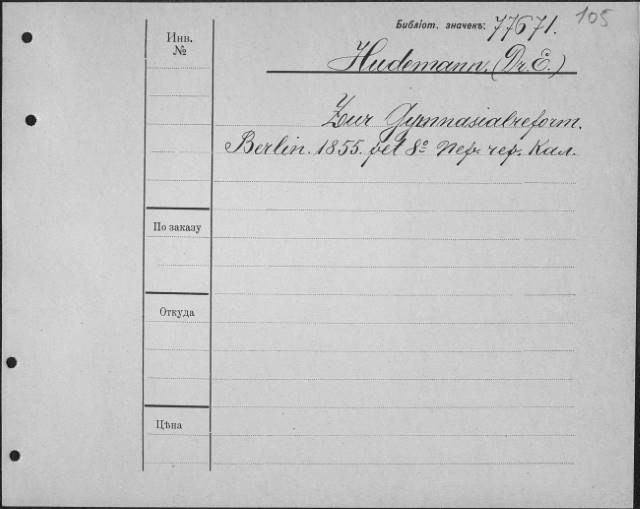 105
Библіот. значекъ: 77671.
Инв.
№
Hudemann. (Dr. E.)
Zur Gymnasialreform.
Berlin. 1855. pet 8º пер. чер. Кал.
По заказу
Откуда
Цѣна